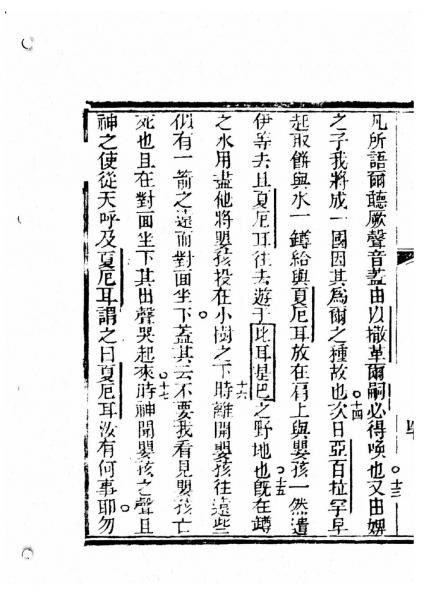 凡所語爾聽厥聲音蓋由以撒革爾嗣必得喚也。十三又由婢
之子我將成一國因其為爾之種故也。十四次日亞百拉罕早
起取餅與水一罇給與夏厄耳放在肩上與嬰孩一然遣
伊等去且夏厄耳往去遊于此耳是巴之野地也。十五既在罇
之水用盡他將嬰孩投在小樹之下。十六時離開嬰孩往遠些
似有一箭之遠而對面坐下蓋其云不要我看見嬰孩亡
死也且在對面坐下其出聲哭起來。十七時神開嬰孩之聲且
神之使從天呼及夏厄耳謂之曰夏厄耳汝有何事耶。勿